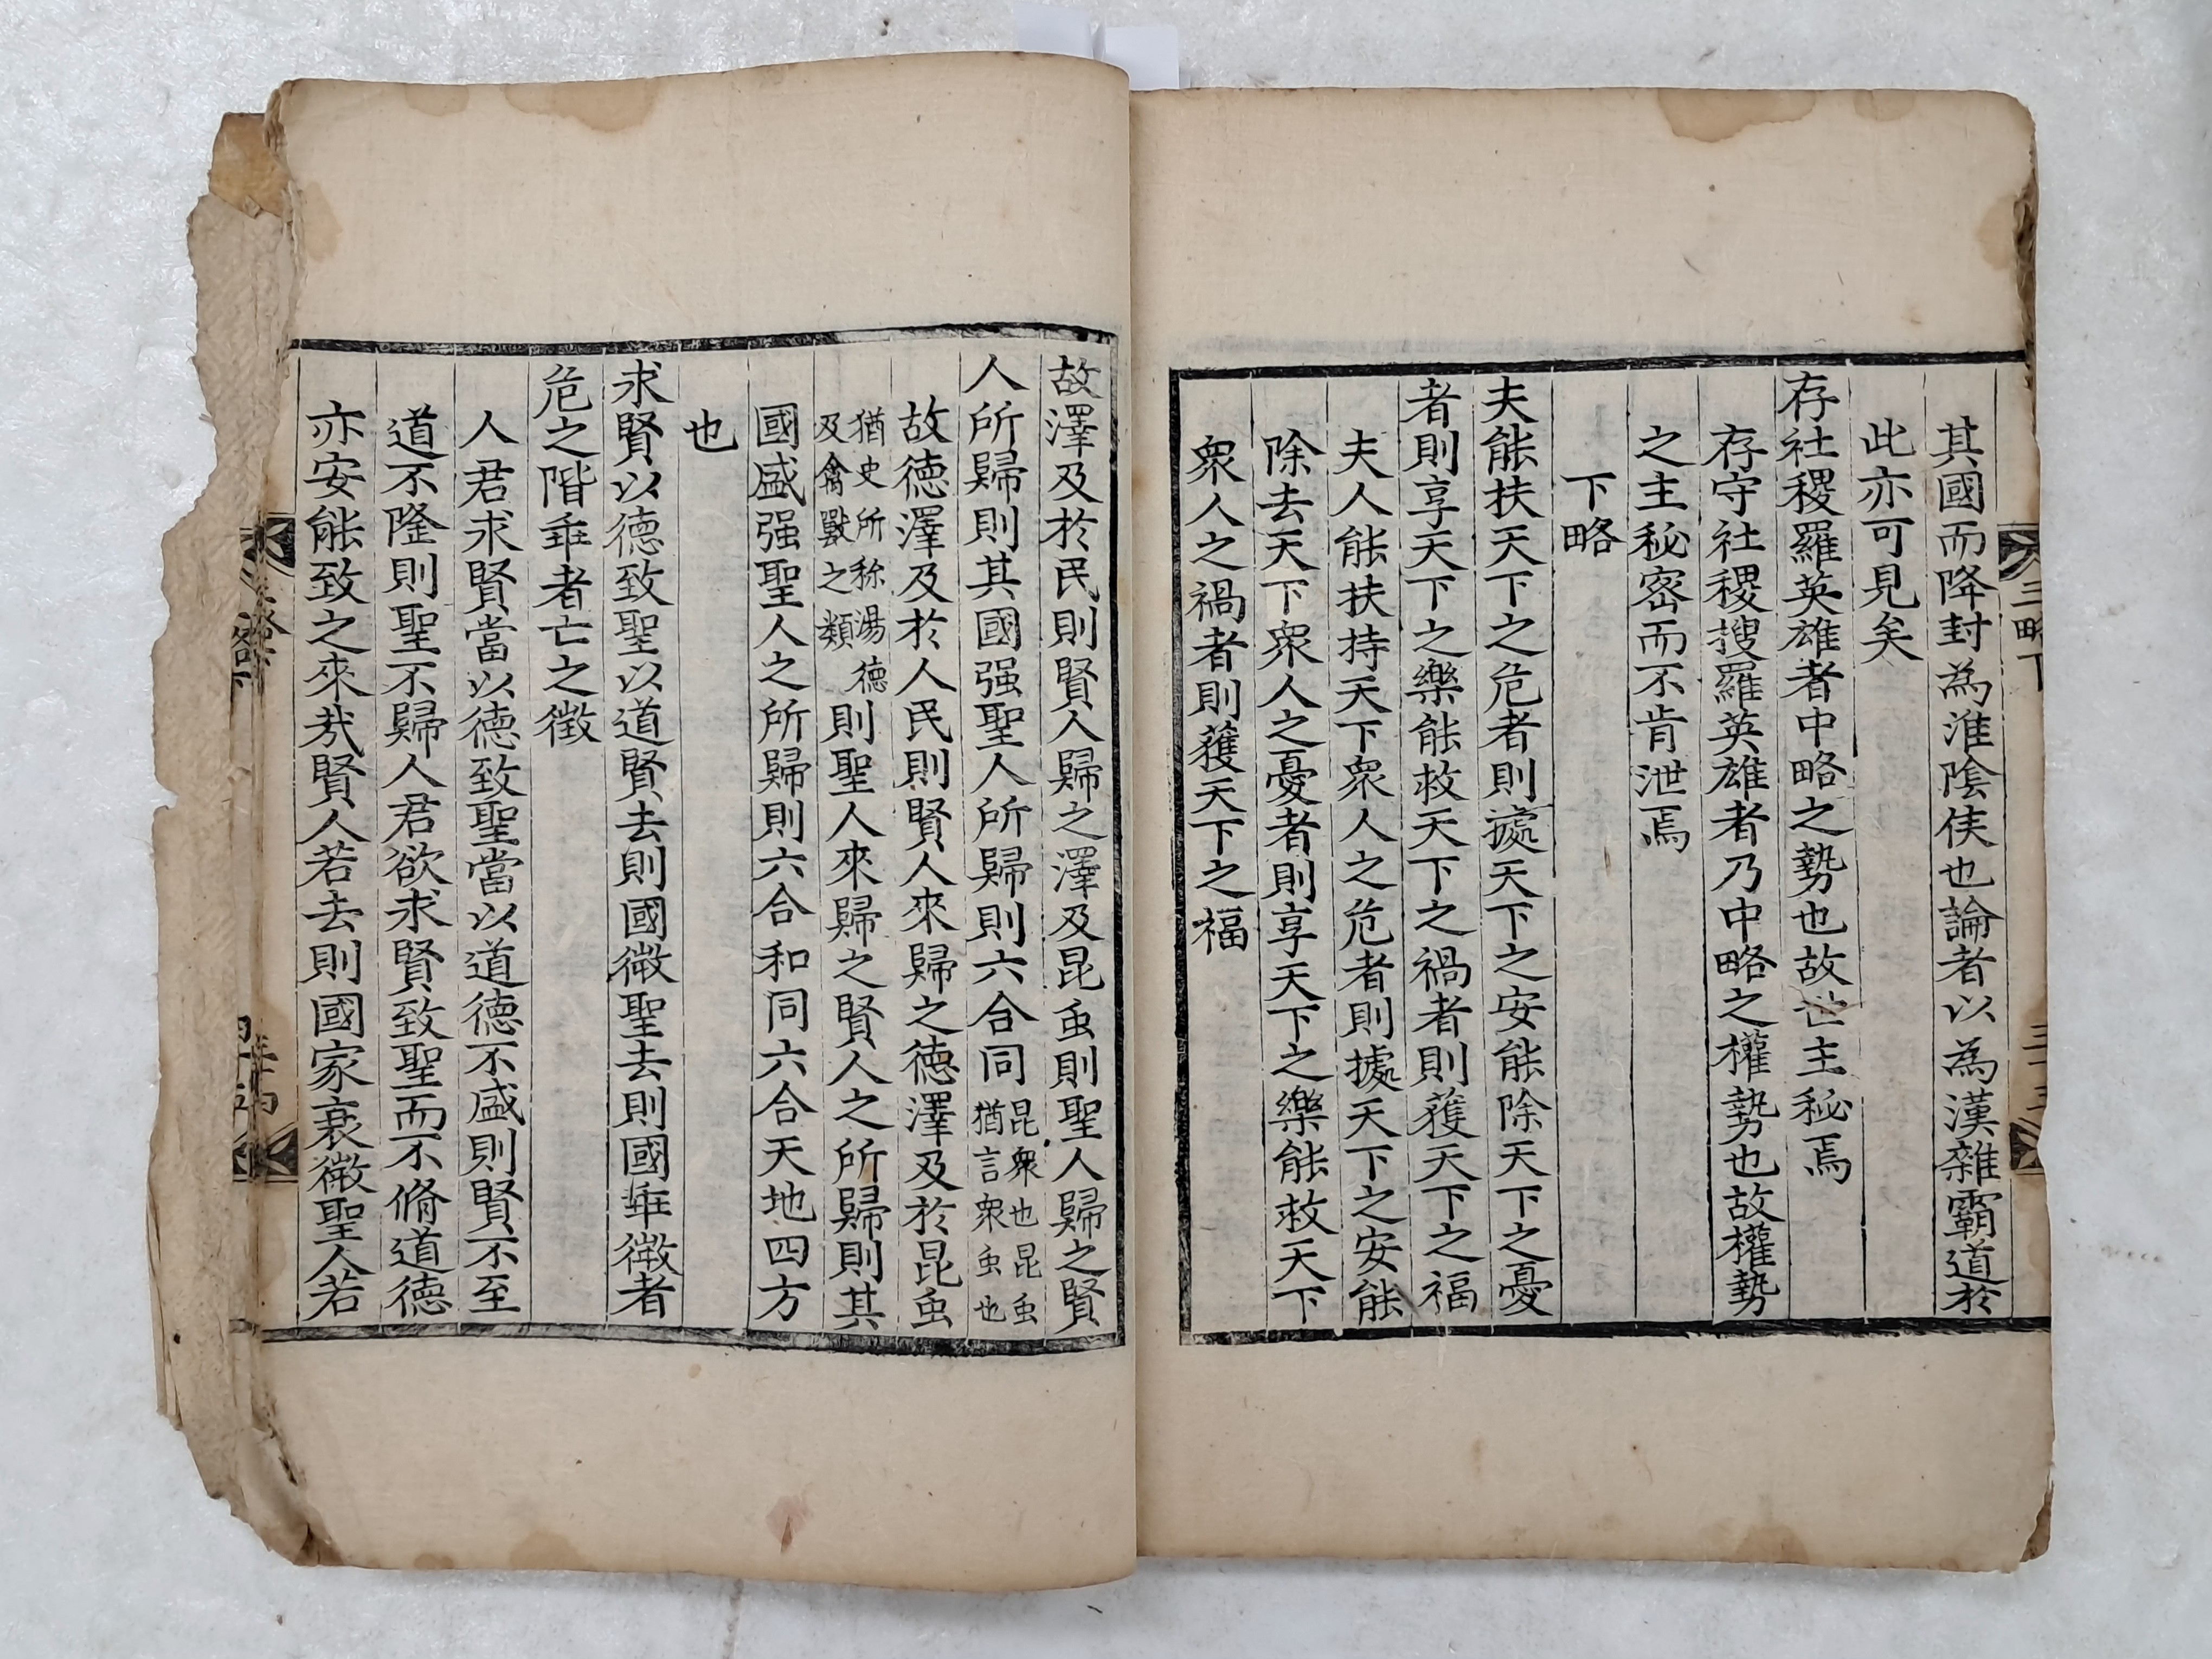 其國而降封為淮陰侯也論者以為漢雜霸道於
此亦可見矣
存社稷羅英雄者中略之勢也故世主秘焉
存守社稷搜羅英雄者乃中略之權勢也故權勢
之主秘密而不肯泄焉
下略
夫能扶天下之危者則據天下之安能除天下之憂
者則享天下之樂能救天下之禍者則獲天下之福
夫人能扶持天下衆人之危者則據天下之安能
除去天下衆人之憂者則享天下之樂能救天下
衆人之禍者則獲天下之福
三略下
故澤及於民則賢人歸之澤及昆虫則聖人歸之賢
人所歸則其國强聖人所歸則六合同昆衆也昆虫猶言衆虫也
故德澤及於人民則賢人來歸之德澤及於昆虫
猶史所称湯德及禽獸之類則聖人來歸之賢人之所歸則其
國盛强聖人之所歸則六合和同六合天地四方
也
求賢以德致聖以道賢去則國微聖去則國乖微者
危之階乖者亡之徵
人君求賢當以德致聖當以道德不盛則賢不至
道不隆則聖不歸人君欲求賢致聖而不脩道德
亦安能致之來哉賢人若去則國家衰微聖人若